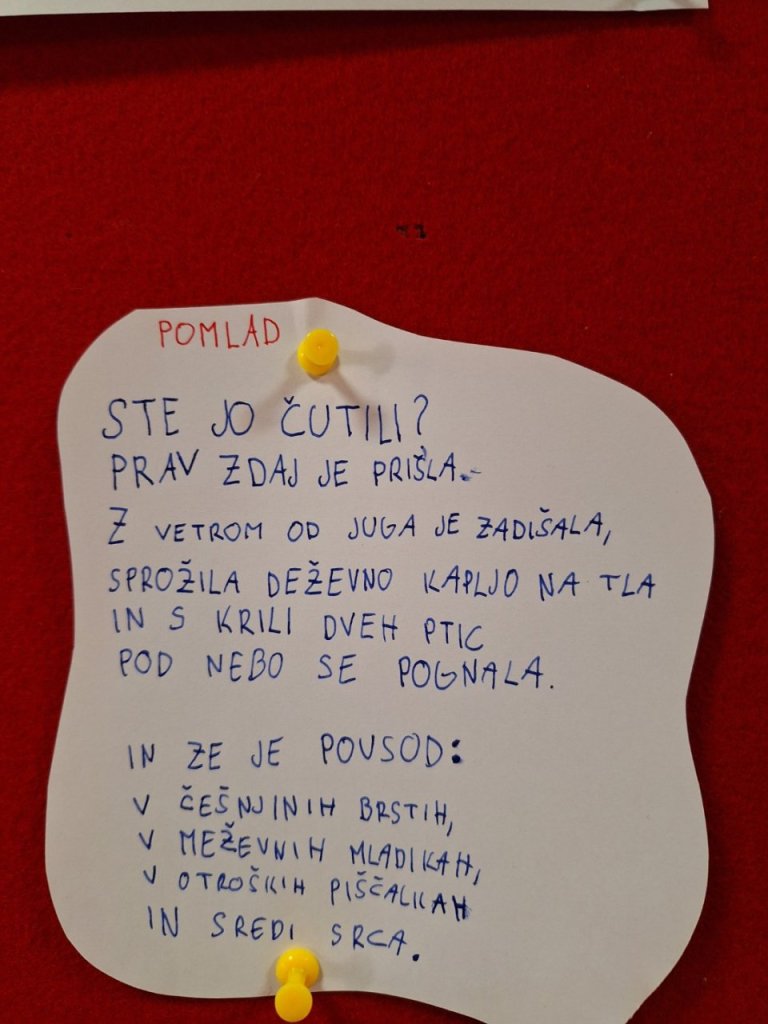 POMLAD
STE JO ČUTILI?
PRAV ZDAJ JE PRIŠLA.
Z VETROM OD JUGA JE ZADIŠALA,
SPROŽILA DEŽEVNO KAPLJO NA TLA
IN S KRILI DVEH PTIC
POD NEBO SE POGNALA.
IN ZE JE POVSOD:
V ČEŠNJINIH BRSTIH,
V MEŽEVNIH MLADIKAH,
V OTROŠKIH PIŠČALKAH
IN SREDI SRCA.